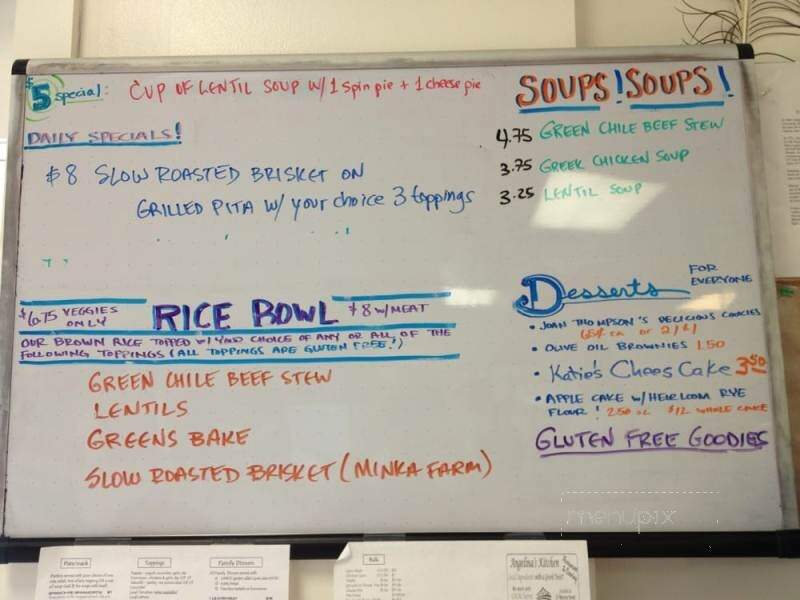 $5 special: CUP OF LENTIL SOUP W/ 1 spin pie + 1 cheese pie
DAILY SPECIALS!
$8 SLOW ROASTED BRISKET ON
GRILLED PITA W/ your choice 3 toppings
SOUPS! SOUPS!
4.75 GREEN CHILE BEEF STEW
3.75 GREEK CHICKEN SOUP
3.25 LENTIL SOUP
$6.75 VEGGIES ONLY RICE BOWL $8 W/MEAT
OUR BROWN RICE TOPPED W/ YOUR CHOICE OF ANY OR ALL OF THE
FOLLOWING TOPPINGS (ALL TOPPINGS ARE GLUTEN FREE!)
GREEN CHILE BEEF STEW
LENTILS
GREENS BAKE
SLOW ROASTED BRISKET (MINKA FARM)
Desserts FOR EVERYONE
• JOAN THOMPSON'S DELICIOUS COOKIES
• OLIVE OIL BROWNIES 1.50
• Katie's Chees Cake 3.50
• APPLE CAKE W/ HEIRLOOM RYE
FLOUR! 2.50 SL $12 WHOLE CAKE
GLUTEN FREE GOODIES
menupix
Pita Snack
Toppings
Family Dinners
Bulk
Angelina's Kitchen